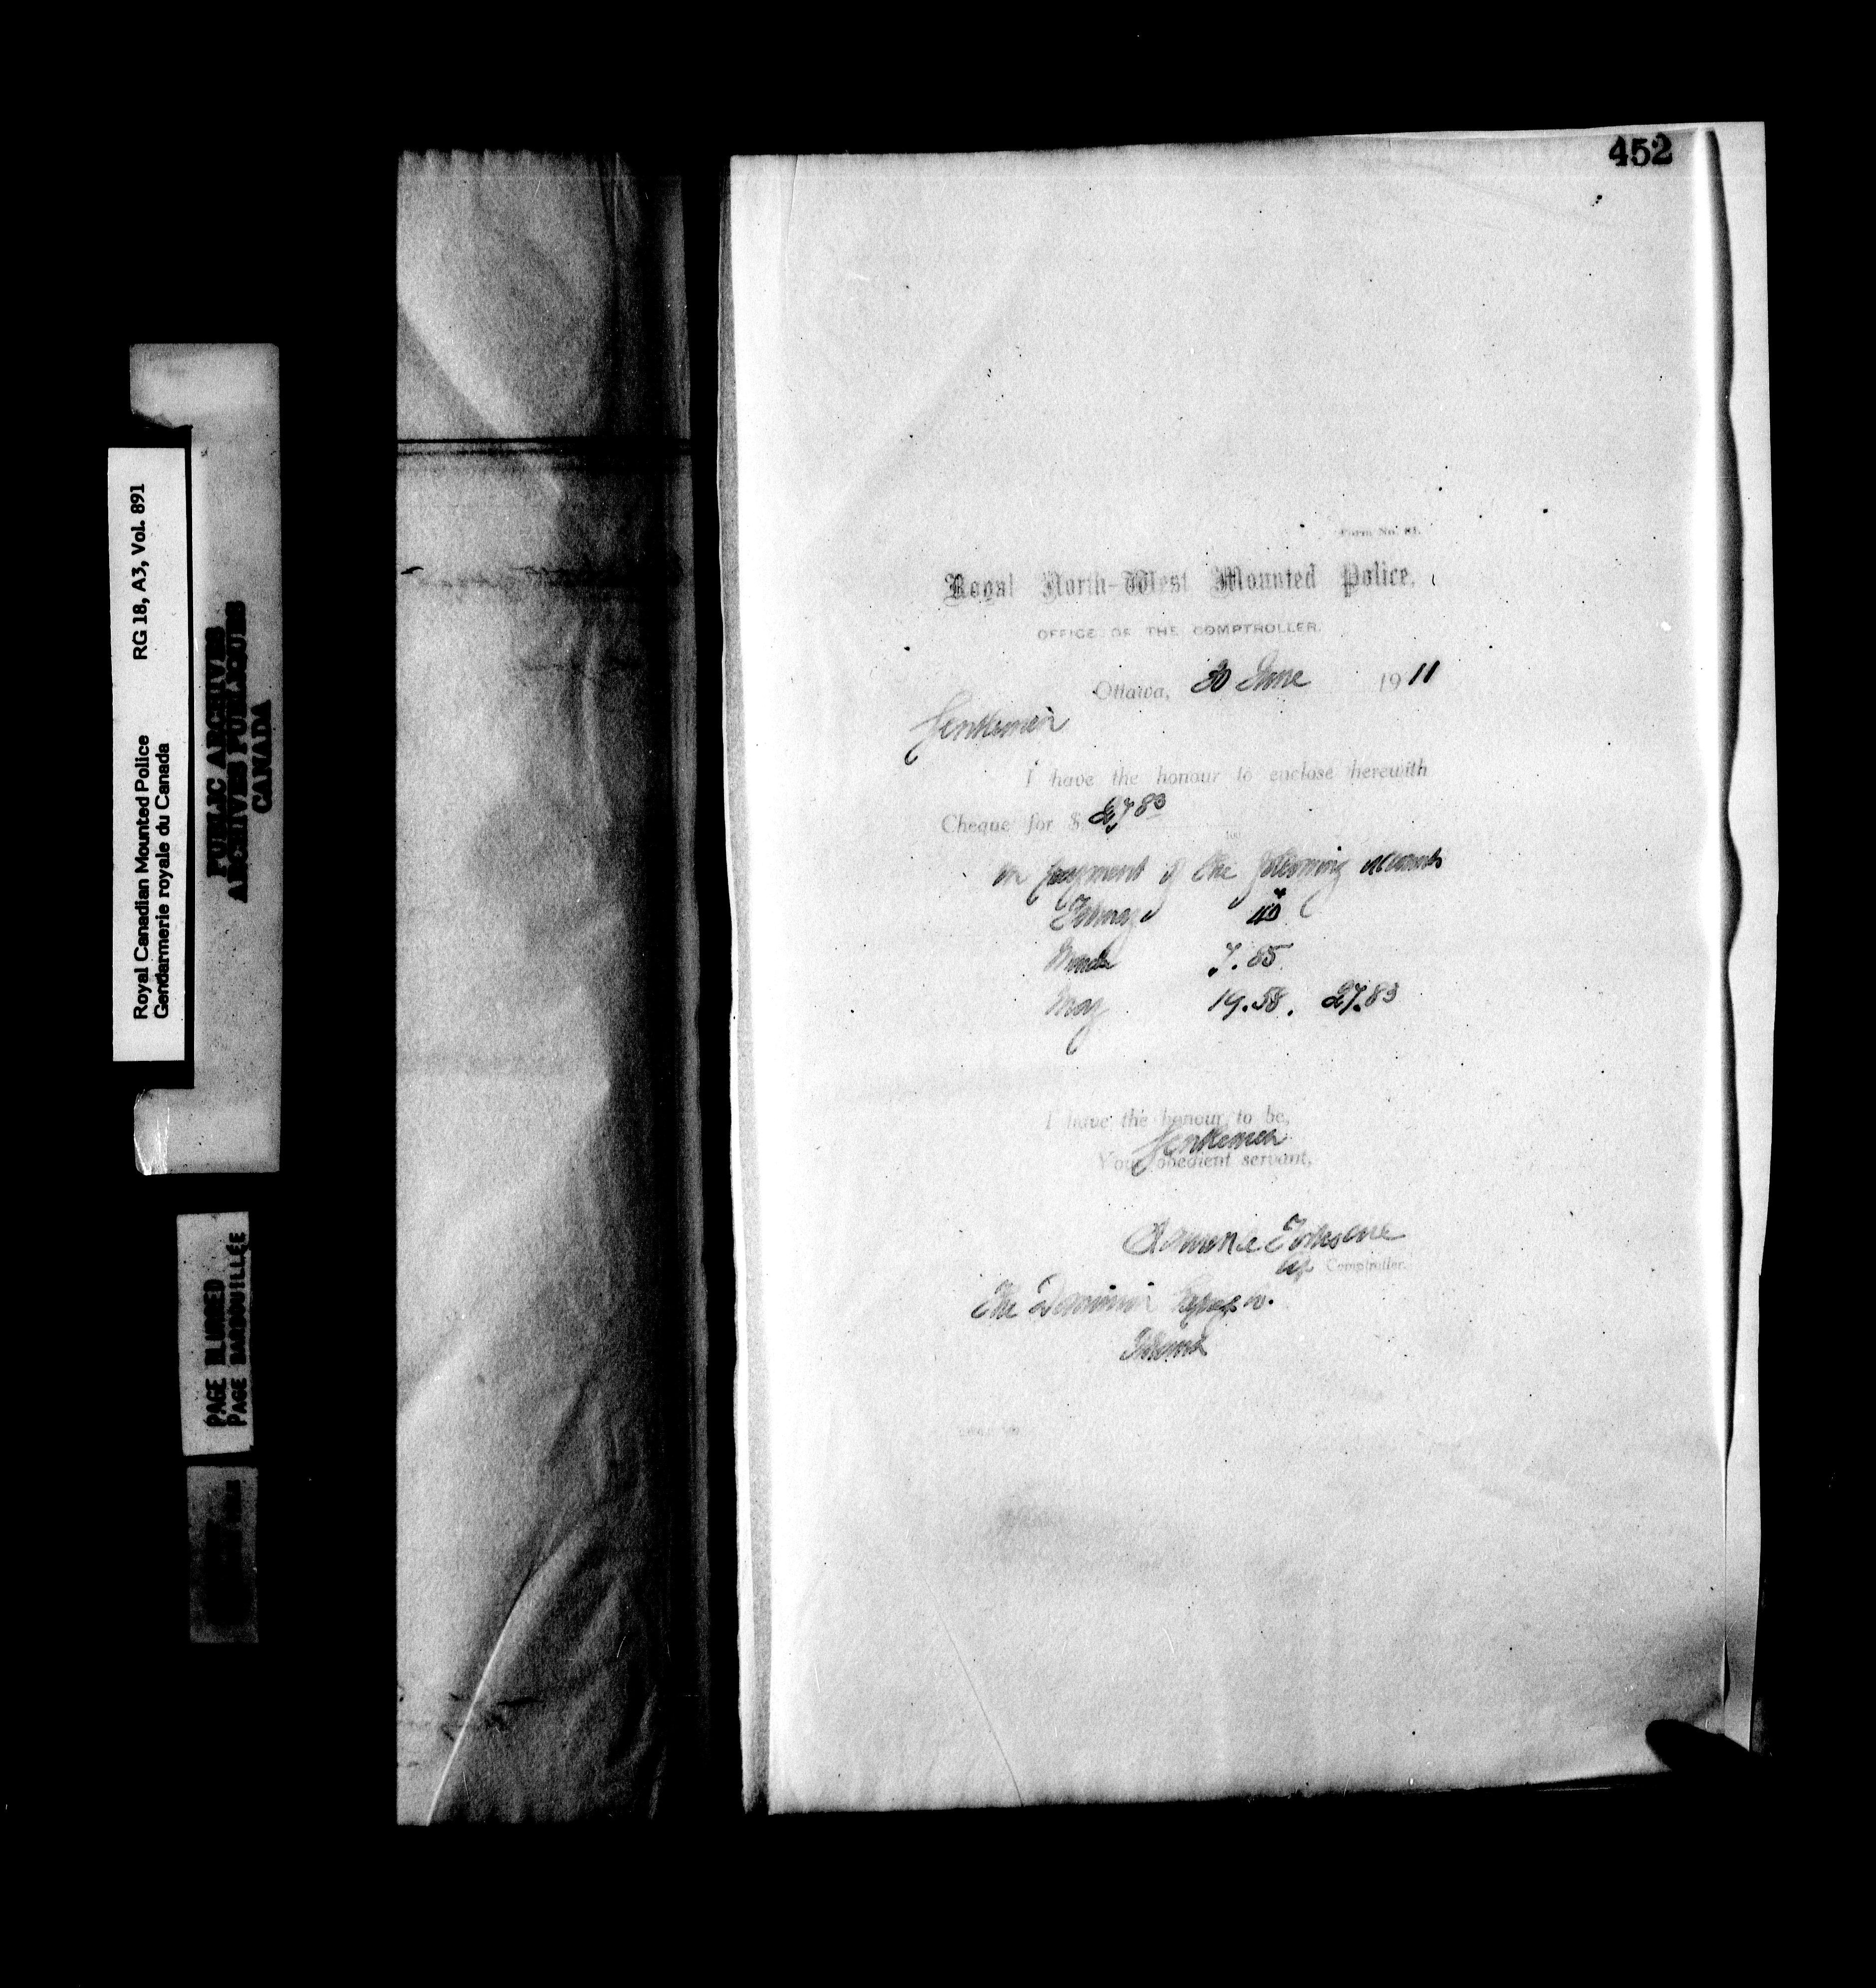 452
Form No. 81.
Royal North-West Mounted Police.
OFFICE OF THE COMPTROLLER.
Ottawa, 30 June 1911
Gentlemen
I have the honour to enclose herewith
Cheque for $ 27.83
in payment of the following accounts
February 40
March 7.85
May 19.58. 27.83
I have the honour to be,
Gentlemen
Your obedient servant,
Laurence Fortescue
Comptroller.
The Dominion Express Co.
Ottawa
Royal Canadian Mounted Police RG 18, A3, Vol. 891
Gendarmerie royale du Canada
PUBLIC ARCHIVES
ARCHIVES PUBLIQUES
CANADA
PAGE BLURRED
PAGE BARBOUILLÉE